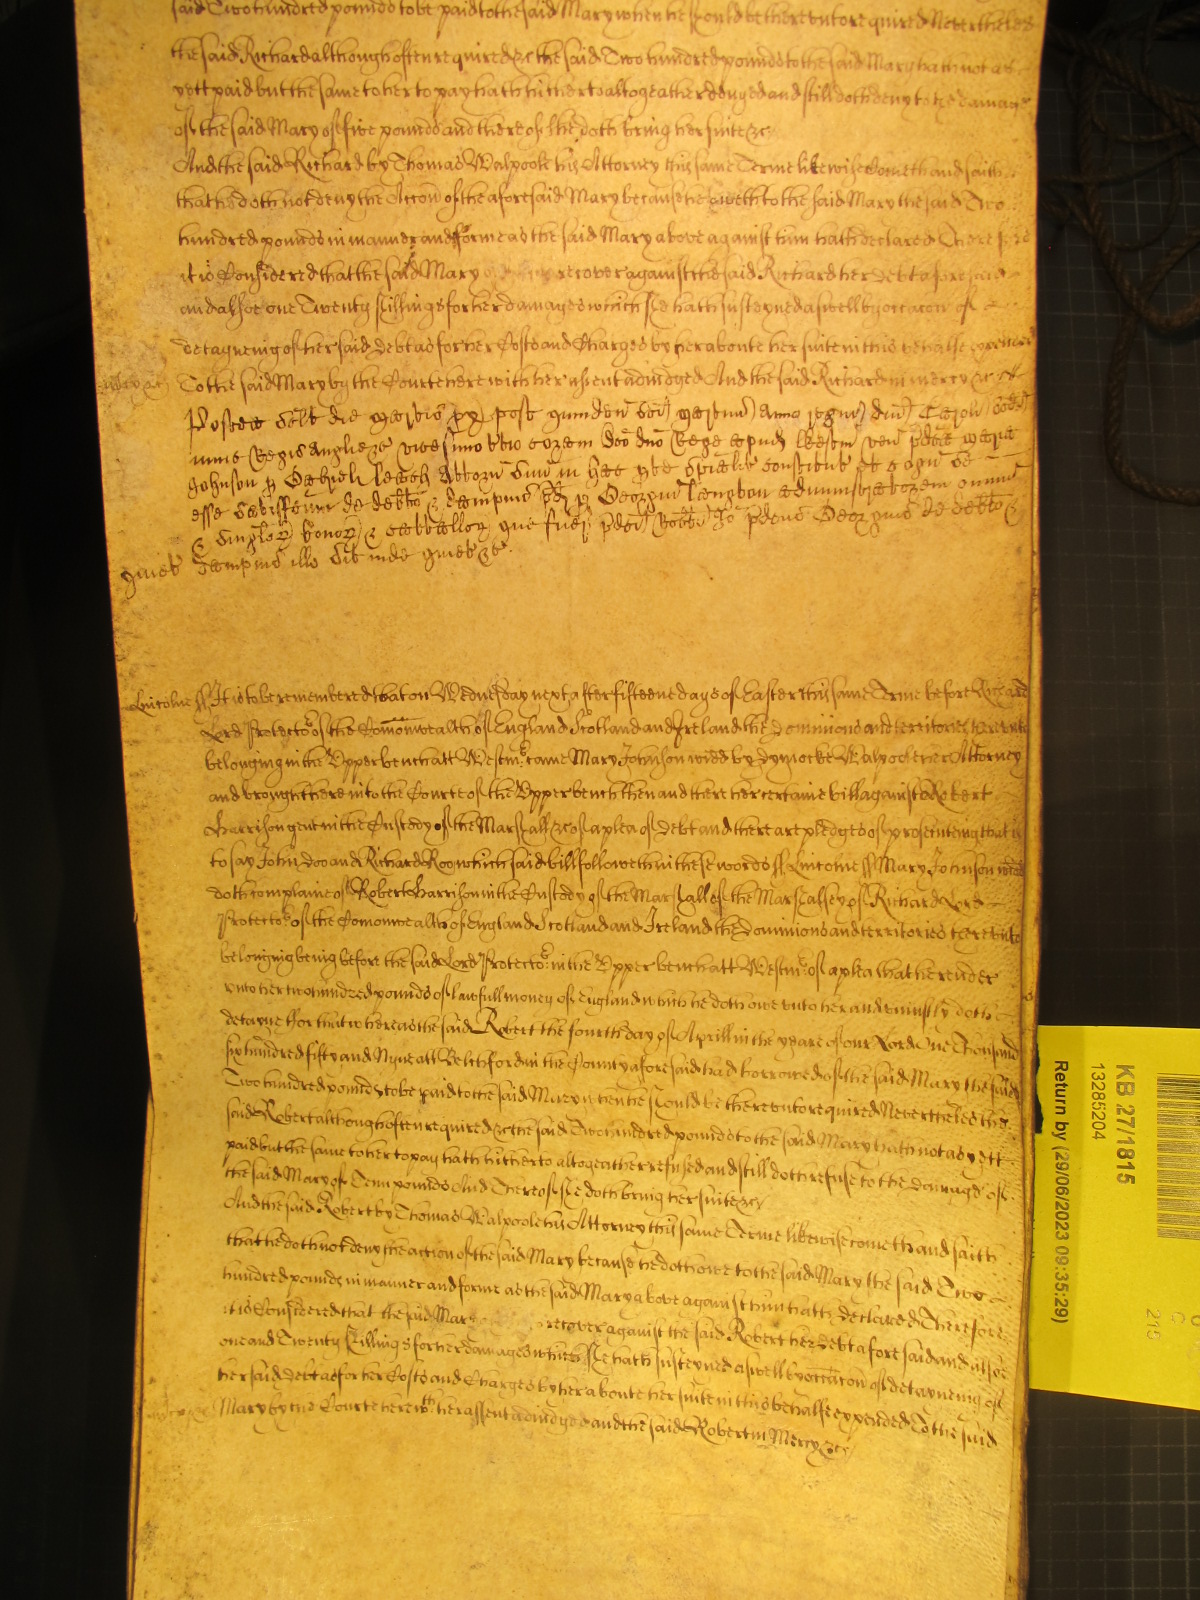 said Two hundred pounds to be paid to the said Mary when he should be thereunto required Neverthelesse
the said Richard although often required &c the said Two hundred pounds to the said Mary hath not as
yett paid but the same to her to pay hath hitherto altogeather denyed and still doth deny to the damage
of the said Mary of five pounds and thereof she doth bring her suite &c
And the said Richard by Thomas Walpoole his Attorney this same Terme likewise cometh and saith
that he doth not deny the Accon of the aforesaid Mary because he oweth to the said Mary the said Two
hundred pounds in manner and forme as the said Mary above against him hath declared Therefore
it is Considered that the said Mary recover against the said Richard her debt aforesaid
and alsoe one Twenty shillings for her damages which she hath susteyned aswell by occacon of
detayneing of her said debt as for her Costs and Charges by her aboute her suite in this behalfe expended
To the said Mary by the Courte here with her assent adiudged And the said Richard in mercy &c
Postea scilt die
nunc Regis Anglie &c vicesimo coram dco dno Rege apud Westm ven pdca Maria
Johnson p Attorn suu in hac pte
esse de debito & dampnis pd p Georgium Langton administratorem omniu
& singlor bonor & catallor que fuer pdci Ricci Io pdcus Georgius de debito &
quiet dampnis illis sit inde quiet &c
Lincolne ss It is to be remembered that on Wednesday next after fifteene dayes of Easter this same Terme before Richard
Lord Protector of the Comonwealth of England Scotland and Ireland the Dominions and territories thereunto
belonging in the Upper bench att Westmr came Mary Johnson widd by Dymocke Walpoole her Attorney
and brought here into the Courte of the Upper bench then and there her certaine bill against Robert
Harrison gent in the Custody of the Marshall &c of a plea of debt and there are pledges of prosecuteing that is
to say John Doo and Richard Roo which said bill followeth in these words ss Lincolne ss Mary Johnson widd
doth complaine of Robert Harrison in the Custody of the Marshall of the Marshalsey of Richard Lord
Protector of the Comonwealth of England Scotland and Ireland the dominions and territories thereunto
belonging being before the said Lord Protector in the Upper bench att Westmr of a plea that he render
unto her two hundred pounds of lawfull money of England which he doth owe unto her and uniustly doth
detayne For that whereas the said Robert the fourth day of Aprill in the yeare of our Lord One Thousand
six hundred fifty and Nyne att Belchford in the County aforesaid had borrowed of the said Mary the said
Two hundred pounds to be paid to the said Mary when he should be thereunto required Neverthelesse the
said Robert although often required &c the said Two hundred pounds to the said Mary hath not as yett
paid but the same to her to pay hath hitherto altogeather refused and still doth refuse to the damage of
the said Mary of Tenn pounds And thereof she doth bring her suite &c
And the said Robert by Thomas Walpoole his Attorney this same Terme likewise cometh and saith
that he doth not deny the action of the said Mary because he doth owe to the said Mary the said Two
hundred pounds in manner and forme as the said Mary above against him hath declared Therefore
it is Considered that the said Mary recover against the said Robert her debt aforesaid and alsoe
one and Twenty shillings for her damages which she hath susteyned aswell by occacon of detayneing of
her said debt as for her Costs and Charges by her aboute her suite in this behalfe expended To the said
Mary by the Courte here wth her assent adiudged and the said Robert in Mercy &c
KB 27/1815
13285204
Return by (29/06/2023 09:35:29)
215